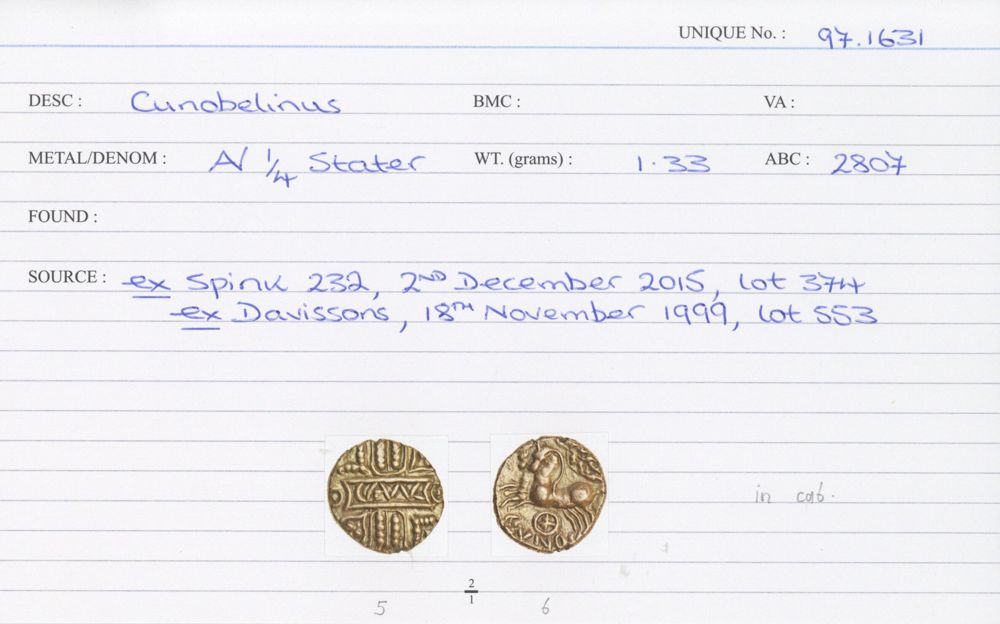 UNIQUE No. : 97.1631
DESC : Cunobelinus BMC : VA :
METAL/DENOM : AV 1/4 Stater WT. (grams) : 1.33 ABC : 2807
FOUND :
SOURCE : ex Spink 232, 2ND December 2015, lot 374
ex Davissons, 18TH November 1999, lot 553
in cab.
2/1
5 6